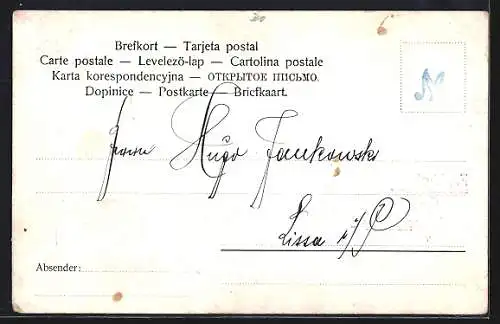 Brefkort — Tarjeta postal
Carte postale — Levelező-lap — Cartolina postale
Karta korespondencyjna — ОТКРЫТОЕ ПИСЬМО.
Dopisnice — Postkarte — Briefkaart.
Herrn Hugo Jankowski
Lissa i/P
Absender: